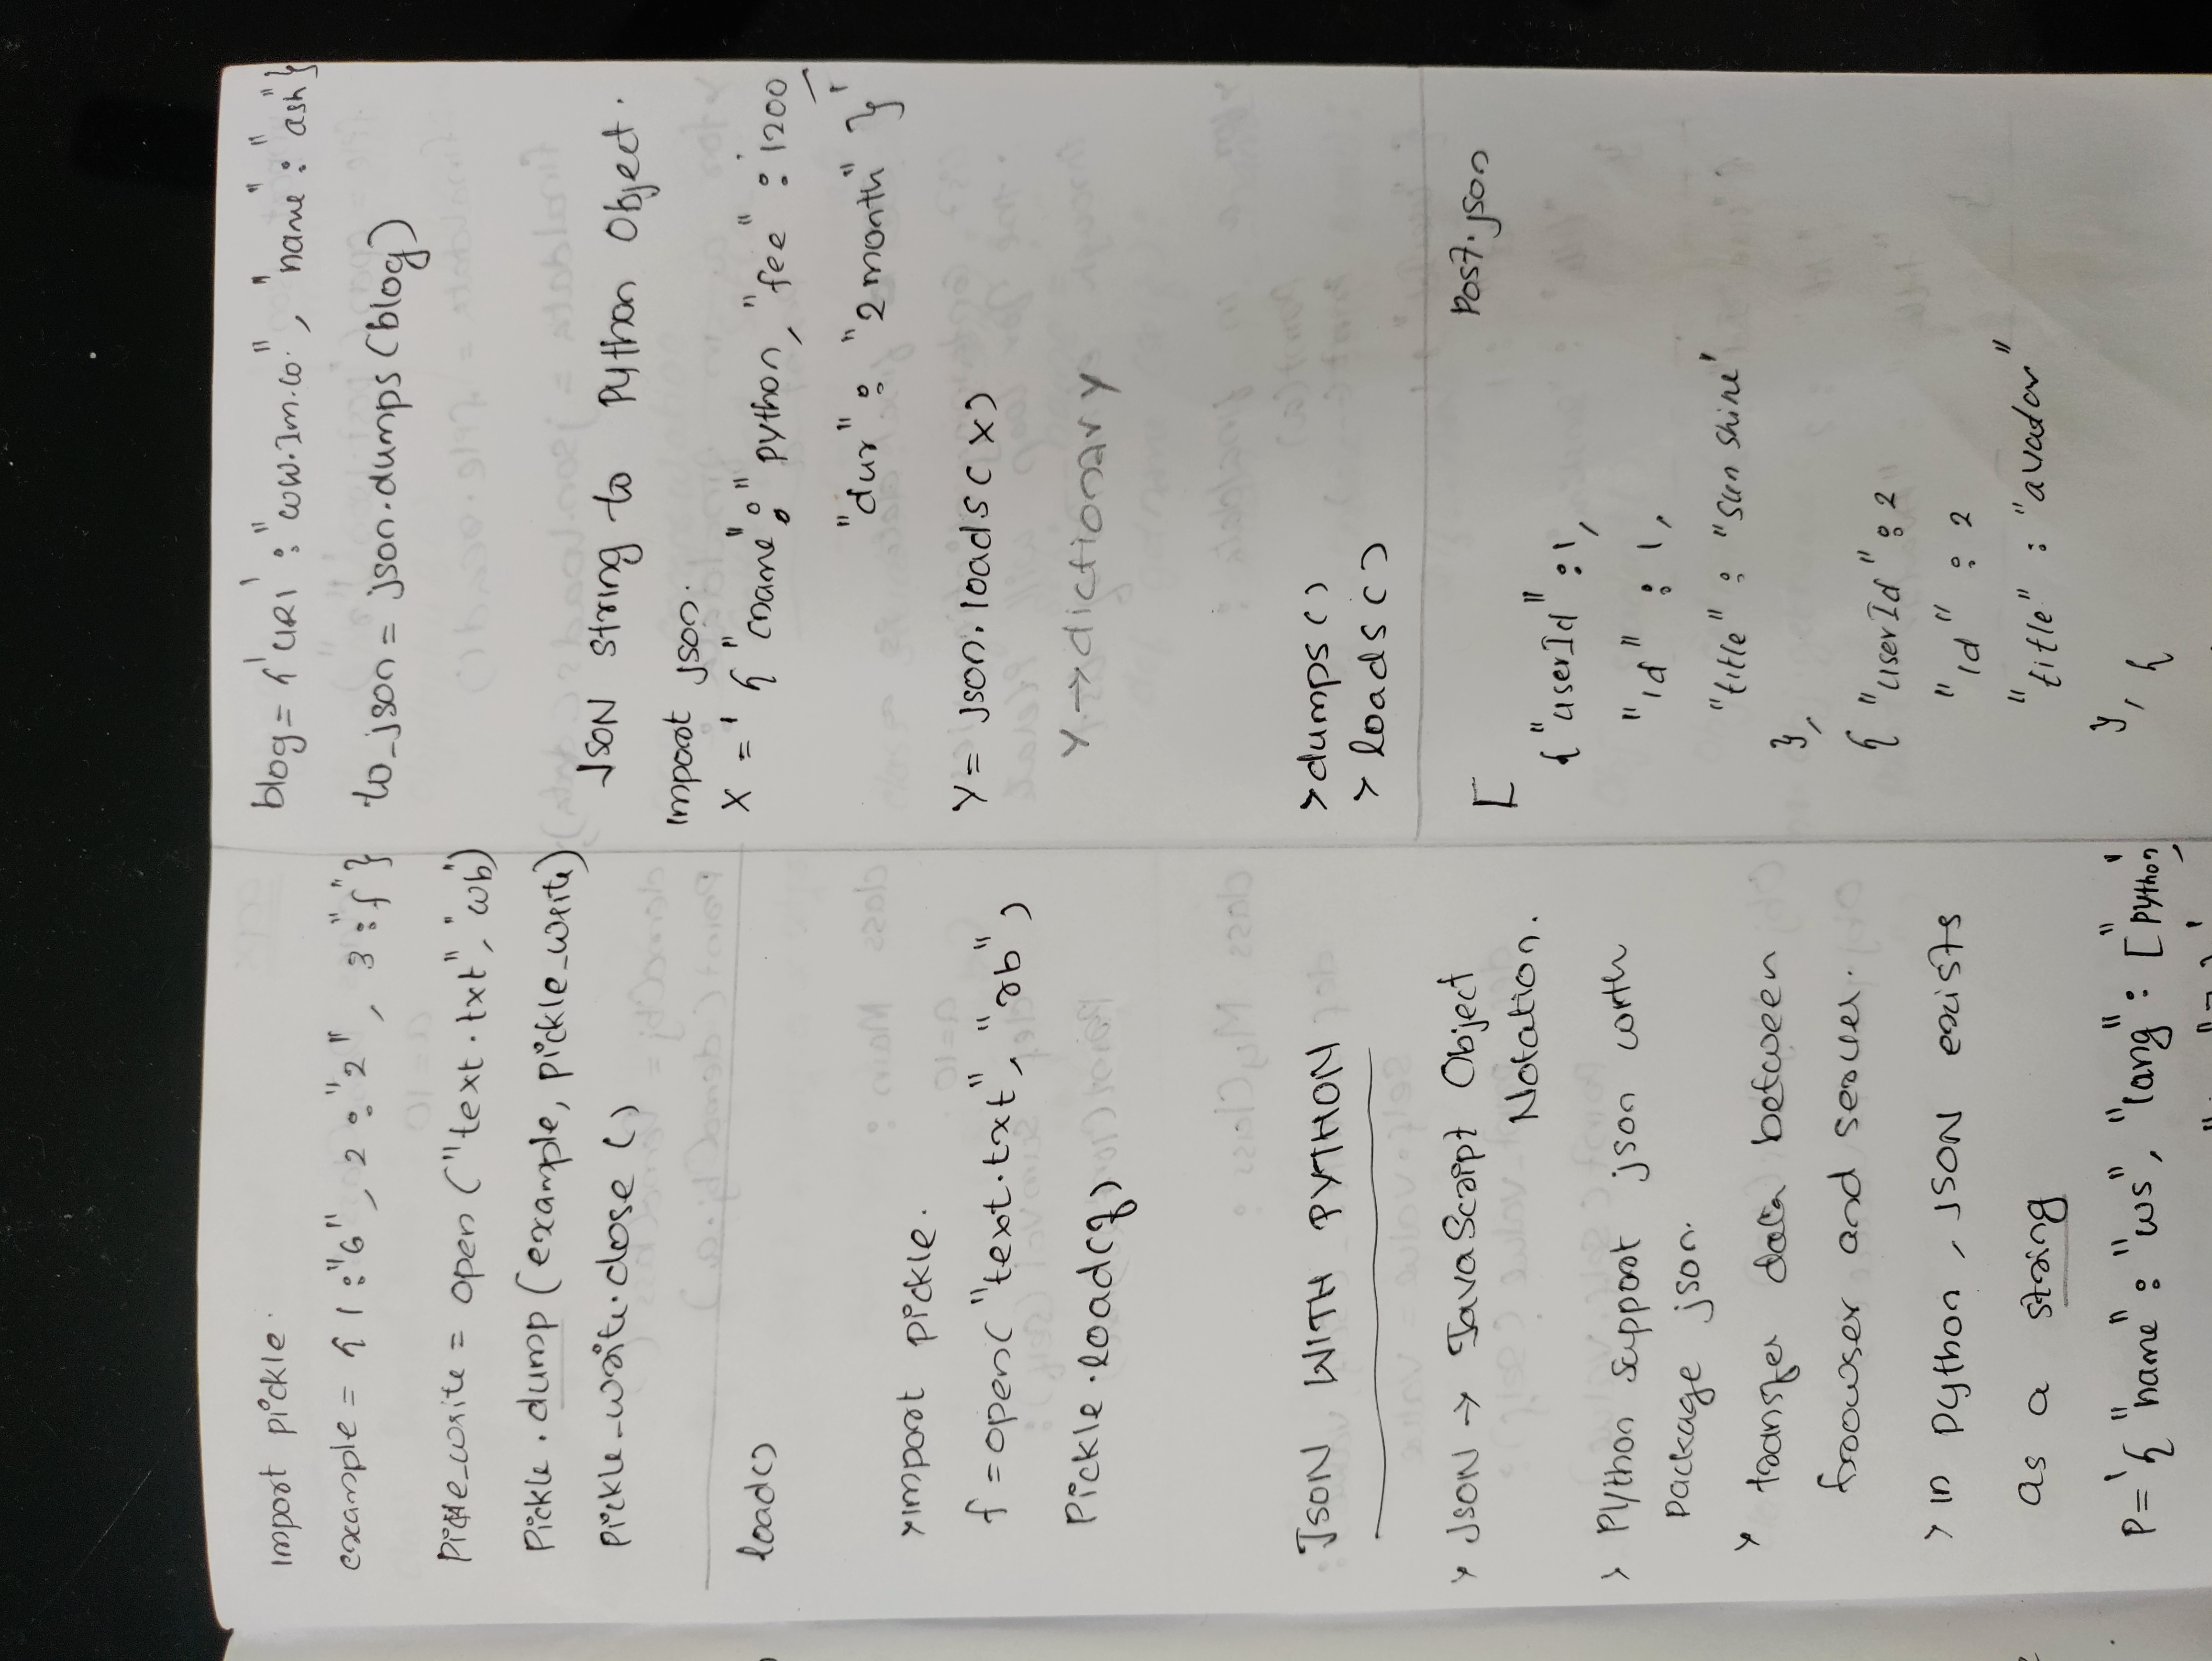 import pickle.
example = { 1 : "6", 2 : "2", 3 : "f" }
Pickle_write = open ("text.txt", "wb")
Pickle.dump (example, pickle_write)
pickle_write.close ()
load()
>import pickle.
f = open( "text.txt", "rb" )
Pickle.load(f)
JSON WITH PYTHON
> JSON → JavaScript Object
Notation.
> Python support json with
package json.
> transfer data between
browser and server.
> in python, JSON exists
as a string
P= '{ "name" : "ws", "lang" : ["python,
blog = { 'URl' : "ww.Im.co.", "name" : "ash" }
to_json = json.dumps (blog)
JSON string to Python Object.
import json.
X = ' { "cname" : "python, "fee" : 1200,
"dur" : "2 month" }'
Y = json.loads( x )
Y → dictionary
>dumps ()
> loads ()
Post.json
[
{ "userId" : 1,
"id" : 1,
"title" : "sun shine'
},
{ "userId" : 2
"id" : 2
"title" : "avatar"
}, {